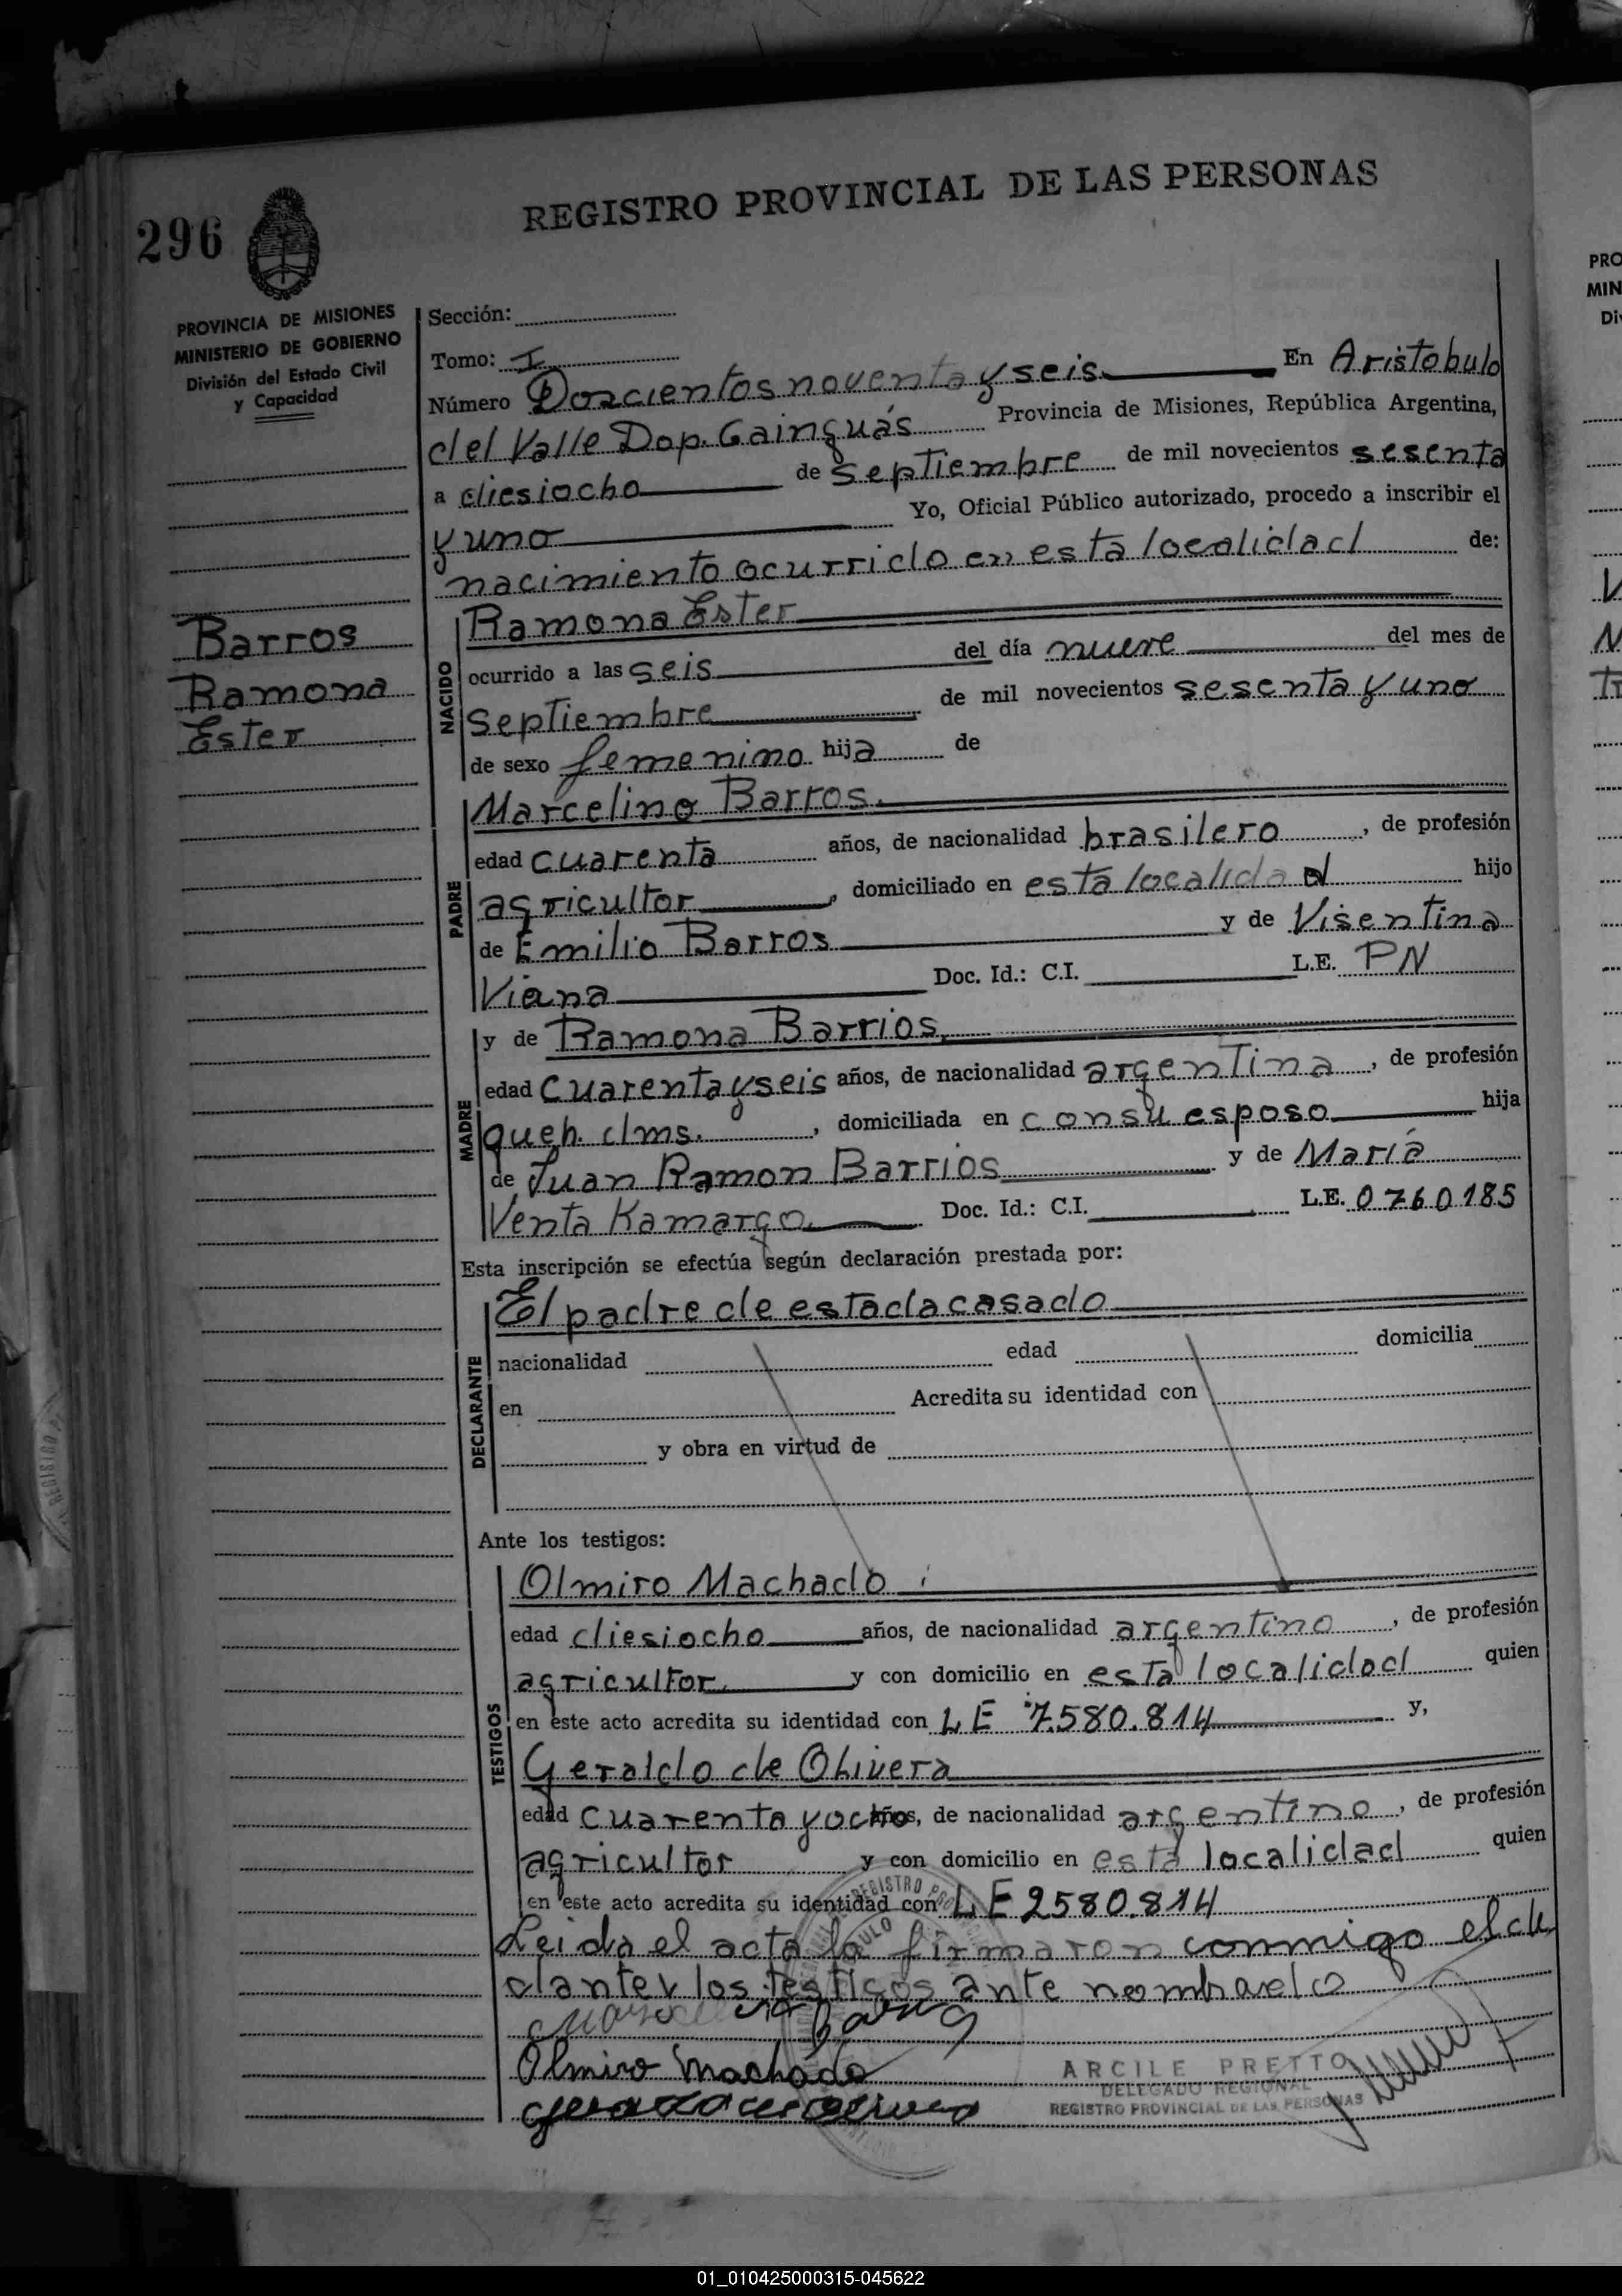 296
REGISTRO PROVINCIAL DE LAS PERSONAS
PROVINCIA DE MISIONES
MINISTERIO DE GOBIERNO
División del Estado Civil
y Capacidad
Barros
Ramona
Ester
Sección:
Tomo: I
Número Doscientos noventa y seis En Aristobulo
del Valle Dop. Cainguás Provincia de Misiones, República Argentina,
a diesiocho de septiembre de mil novecientos sesenta
y uno Yo, Oficial Público autorizado, procedo a inscribir el
nacimiento ocurrido en esta localidad de:
NACIDO
Ramona Ester
ocurrido a las seis del día nueve del mes de
septiembre de mil novecientos sesenta y uno
de sexo femenino hija de
PADRE
Marcelino Barros.
edad cuarenta años, de nacionalidad brasilero, de profesión
agricultor, domiciliado en esta localidad hijo
de Emilio Barros y de Visentina
Viana Doc. Id.: C.I. L.E. PN
MADRE
y de Ramona Barrios,
edad cuarenta y seis años, de nacionalidad argentina, de profesión
queh. dms., domiciliada en con su esposo hija
de Juan Ramon Barrios y de Maria
Venta Kamargo. Doc. Id.: C.I. L.E. 0760185
Esta inscripción se efectúa según declaración prestada por:
DECLARANTE
El padre de estada casado
nacionalidad edad domicilia
en Acredita su identidad con
y obra en virtud de
Ante los testigos:
TESTIGOS
Olmiro Machado
edad diesiocho años, de nacionalidad argentino, de profesión
agricultor, y con domicilio en esta localidad quien
en este acto acredita su identidad con LE 7.580.814 y,
Geraldo de Olivera
edad cuarenta y ocho años, de nacionalidad argentino, de profesión
agricultor y con domicilio en esta localidad quien
en este acto acredita su identidad con LE 2580.814
Leida el acta la firmaron conmigo el de
clante y los testigos ante nombrado
Olmiro Machado
ARCILE PRETTO
DELEGADO REGIONAL
REGISTRO PROVINCIAL DE LAS PERSONAS
PRO
MIN
Di
01_010425000315-045622